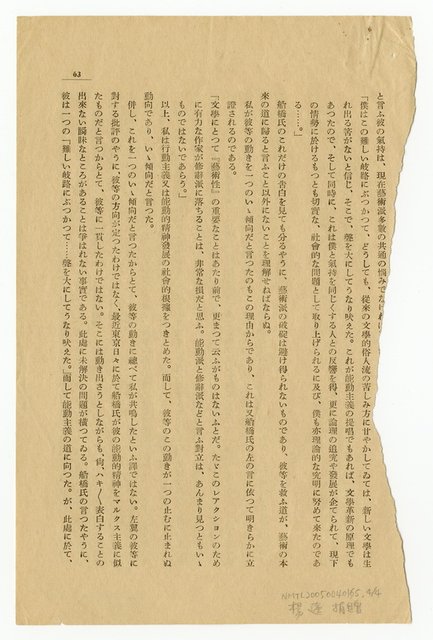 と言ふ彼の氣持は、現在藝術派多數の共通の惱みでなければ
「僕はこの難しい岐路にぶつかつて、どうしても、從來の文學的俗人流の苦しみ方に甘やかしてゐては、新しい文學は生
れ出る筈がないと信じ、そこで、聲を大にしてうなり吠えた。これが能動主義の提唱でもあれば、文學革新の原理でも
あつたので、そして同時に、これは僕と氣持を同じくする人との反響を得、更に論理の追究や發展が企てられて、現下
の情勢に於けるもつとも切實な、社會的な問題として取り上げられるに及び、僕も亦理論的な究明に努めて來たのであ
る……。」
船橋氏のこれだけの告白を見ても分るやうに、藝術派の破綻は避け得られないものであり、彼等を救ふ道が、藝術の本
來の道に歸ると言ふこと以外にないことを理解せねばならぬ。
私が彼等の動きを一つのいゝ傾向だと言つたのもこの理由からであり、これは又船橋氏の左の言に依つて明きらかに立
證されるのである。
「文學にとつて『藝術性』の重要なことはあたり前で、更まつて云ふがものはないふとだ。たゞこのレアクションのため
に有力な作家が修辭派に落ちることは、非常な損だと思ふ。能動派と修辭派などと言ふ對立は、あんまり見つともいゝ
ものではないであらう。」
以上、私は行動主義又は能動的精神發展の社會的根據をつきとめた。而して、彼等のこの動きが一つの止むに止まれぬ
動向であり、いゝ傾向だと言つた。
併し、これを一つのいゝ傾向だと言つたからとて、彼等の動きに總べて私が共鳴したといふ譯ではない。左翼の彼等に
對する批評のやうに、彼等の方向が定つたわけではなく、最近東京日々に於て船橋氏が彼の能動的精神をマルクス主義に似
たものだと言つたからとて、彼等に一貫したわけではない。そこには動き出さうとしながらも、尙、ハキ〳〵表白することの
出來ない曖昧なところがあることは爭はれない事實である。此處に未解決の問題が横つてゐる。船橋氏の言つたやうに、
彼は一つの「難しい岐路にぶつかつて…聲を大にしてうなり吠えた。」而して能動主義の道に向つた。が、此處に於て、
63
NMTL20050040165, 4/4
楊逵 捐贈